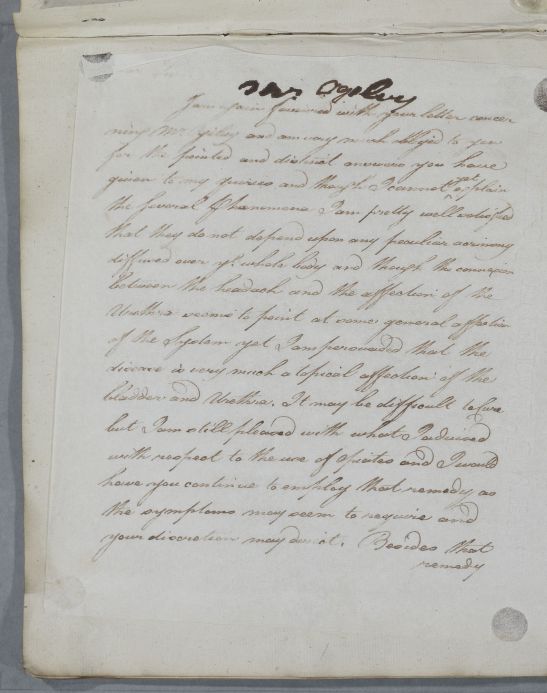 Mr Ogilvy
I am again favoured with your letter concer
ning Mr Ogilvy and am very much obliged to you
for the pointed and distinct answers you have
given to my queries and though I cannot yet explain
the several Phenomena I am pretty well satisfied
that they do not depend upon any peculiar acrimony
diffused over ye whole body and though the connexion
between the headach and the affection of the
Urethra seems to point at some general affection
of the System yet I am persuaded that the
disease is very much a topical affection of the
bladder and Urethra. It may be difficult to Cure
but I am still pleased with what I advised
with respect to the use of Opiates and I would
have you continue to employ that remedy as
the symptoms may seem to require and
your discretion may direct. Besides that
remedy